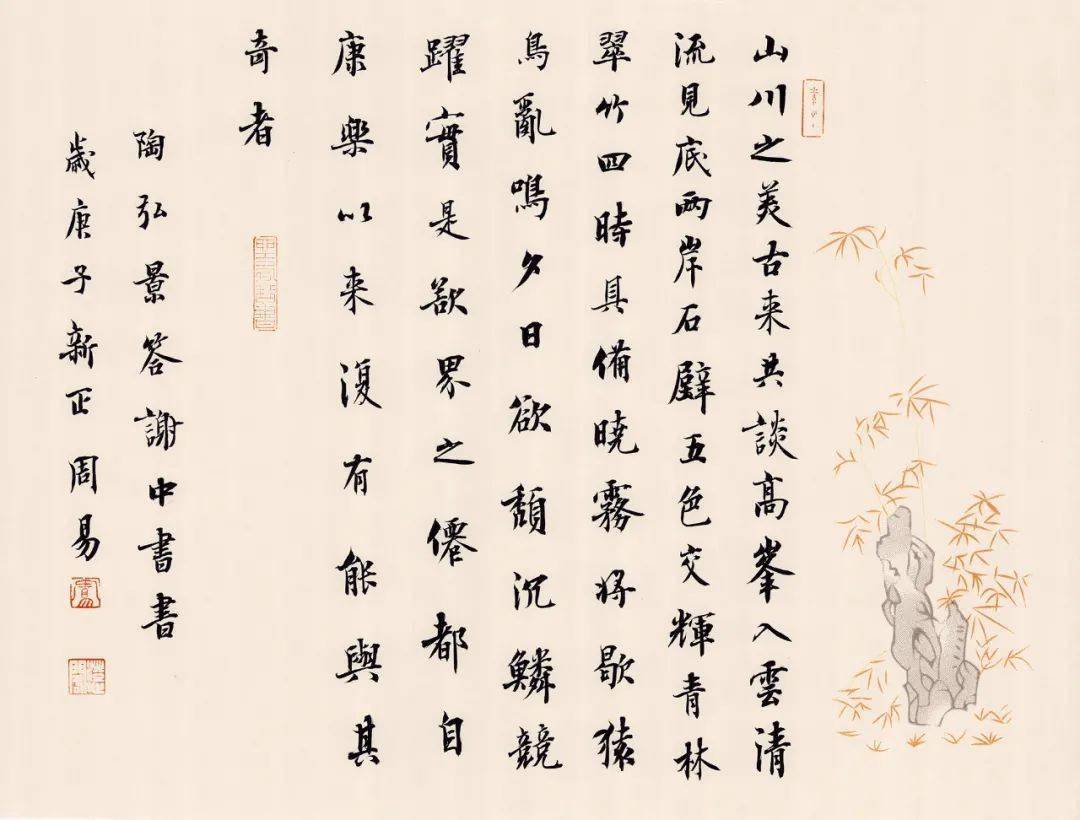 山川之美古来共談高峯入雲清
流見底兩岸石壁五色交輝青林
翠竹四時具備曉霧将歇猿
鳥亂鳴夕日欲頹沉鱗競
躍實是欲界之僊都自
康樂以来復有能與其
奇者
陶弘景答謝中書書
歲庚子新正周易